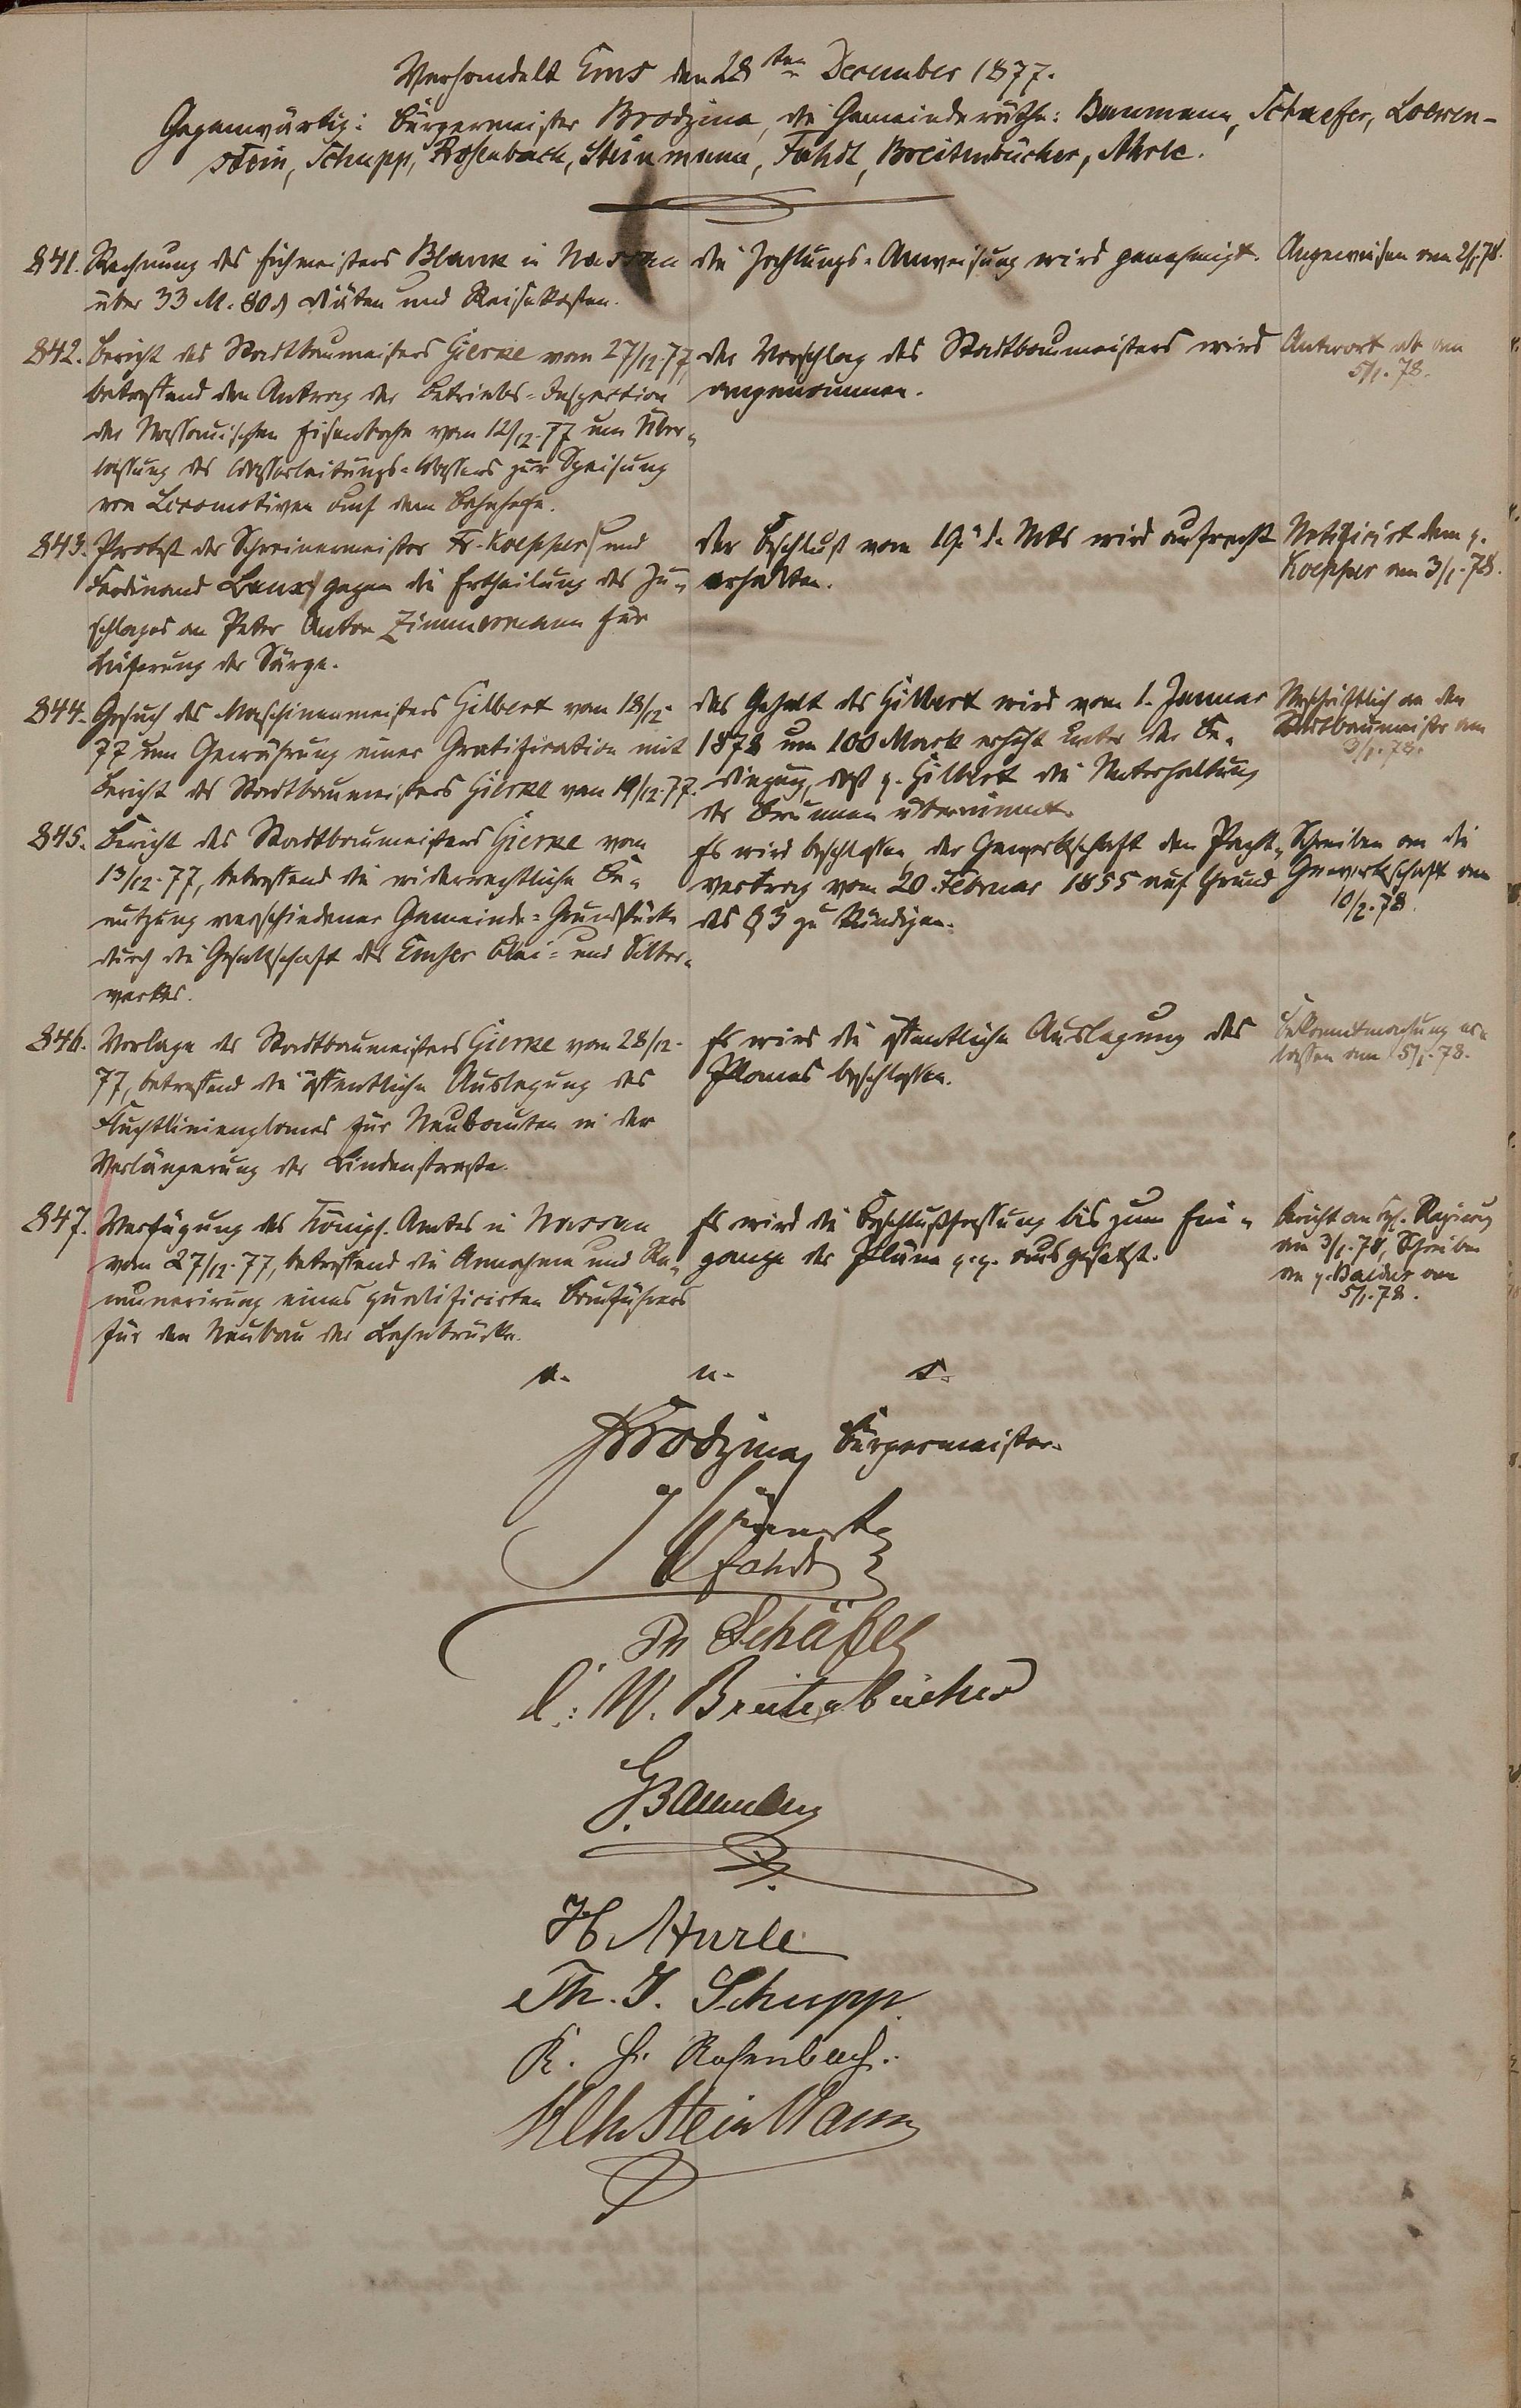 Verhandelt Ems den 28ten December 1877.
Gegenwärtig: Bürgermeister Brodzina, die Gemeinderäthe: Baumann, Schaefer, Loewen-
stein, Schupp, Rosenbach, Steinmann, Fahdt, Breitenbücher, Ahrle.
841. Rechnung des Eichmeisters Blank in Nassau
über 33 M. 80 ₰ Diäten und Reisekosten.
die Zahlungs-Anweisung wird genehmigt.
Angewiesen am 2/1.78.
842. Bericht des Stadtbaumeisters Gierke vom 27/12.77,
betreffend den Antrag der Betriebs-Inspection
der Nassauischen Eisenbahn vom 12/12.77 um Über-
lassung des Wasserleitungs-Wassers zur Speisung
von Locomotiven auf dem Bahnhofe.
der Vorschlag des Stadtbaumeisters wird
angenommen.
Antwort ab am
5/1.78.
843. Protest der Schreinermeister Fr. Koepper und
Ferdinand Laux gegen die Ertheilung des Zu-
schlages an Peter Anton Zimmermann für
Lieferung der Särge.
der Beschluß vom 19. d. Mts wird aufrecht
erhalten.
Notificirt dem p.
Koepper am 3/1.78.
844. Gesuch des Maschinenmeisters Gilbert vom 18/12.
77 um Gewährung einer Gratification mit
Bericht des Stadtbaumeisters Gierke vom 19/12.77.
das Gehalt des Gilbert wird vom 1. Januar
1878 um 100 Mark erhöht unter der Be-
dingung, daß p. Gilbert die Unterhaltung
der Brunnen übernimmt.
Abschriftlich an den
Stadtbaumeister am
3/1.78.
845. Bericht des Stadtbaumeisters Gierke vom
13/12.77, betreffend die widerrechtliche Be-
nutzung verschiedener Gemeinde-Grundstücke
durch die Gesellschaft des Emser Blei- und Silber-
werkes.
Es wird beschlossen, der Gewerkschaft den Pacht-
vertrag vom 20. Februar 1855 auf Grund
des § 3 zu kündigen.
Schreiben an die
Gewerkschaft am
10/2.78
846. Vorlage des Stadtbaumeisters Gierke vom 28/12.
77, betreffend die öffentliche Auslegung des
Fluchtlinienplanes für Neubauten in der
Verlängerung der Lindenstraße.
Es wird die öffentliche Auslegung des
Planes beschlossen.
Bekanntmachung er-
lassen am 5/1.78.
847. Verfügung des Königl. Amtes in Nassau
vom 27/12.77, betreffend die Annahme und Re-
munerirung eines qualificirten Bauführers
für den Neubau der Lahnbrücke.
Es wird die Beschlußfassung bis zum Ein-
gange der Pläne p.p. ausgesetzt.
Bericht an Kgl. Regierung
am 3/1.78, Schreiben
an p. Balzer am
5/1.78.
a. u. s.
Brodzina, Bürgermeister.
Fahdt
Ph Schäfer
C. W. Breitenbücher
G. Baumann
H. Ahrle
Th. J. Schupp
K. H. Rosenbach.
Wlh Steinmann